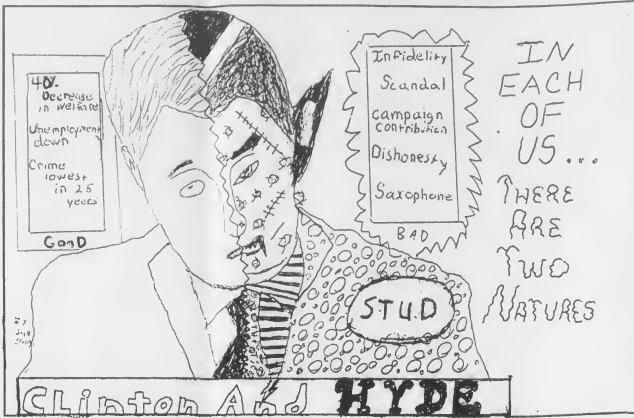 40%
Decrease
in welfare
Unemployment
down
Crime
lowest
in 25
years
GOOD
Infidelity
Scandal
Campaign
contribution
Dishonesty
Saxophone
BAD
IN
EACH
OF
US...
THERE
ARE
TWO
NATURES
STUD
CLinton And HYDE